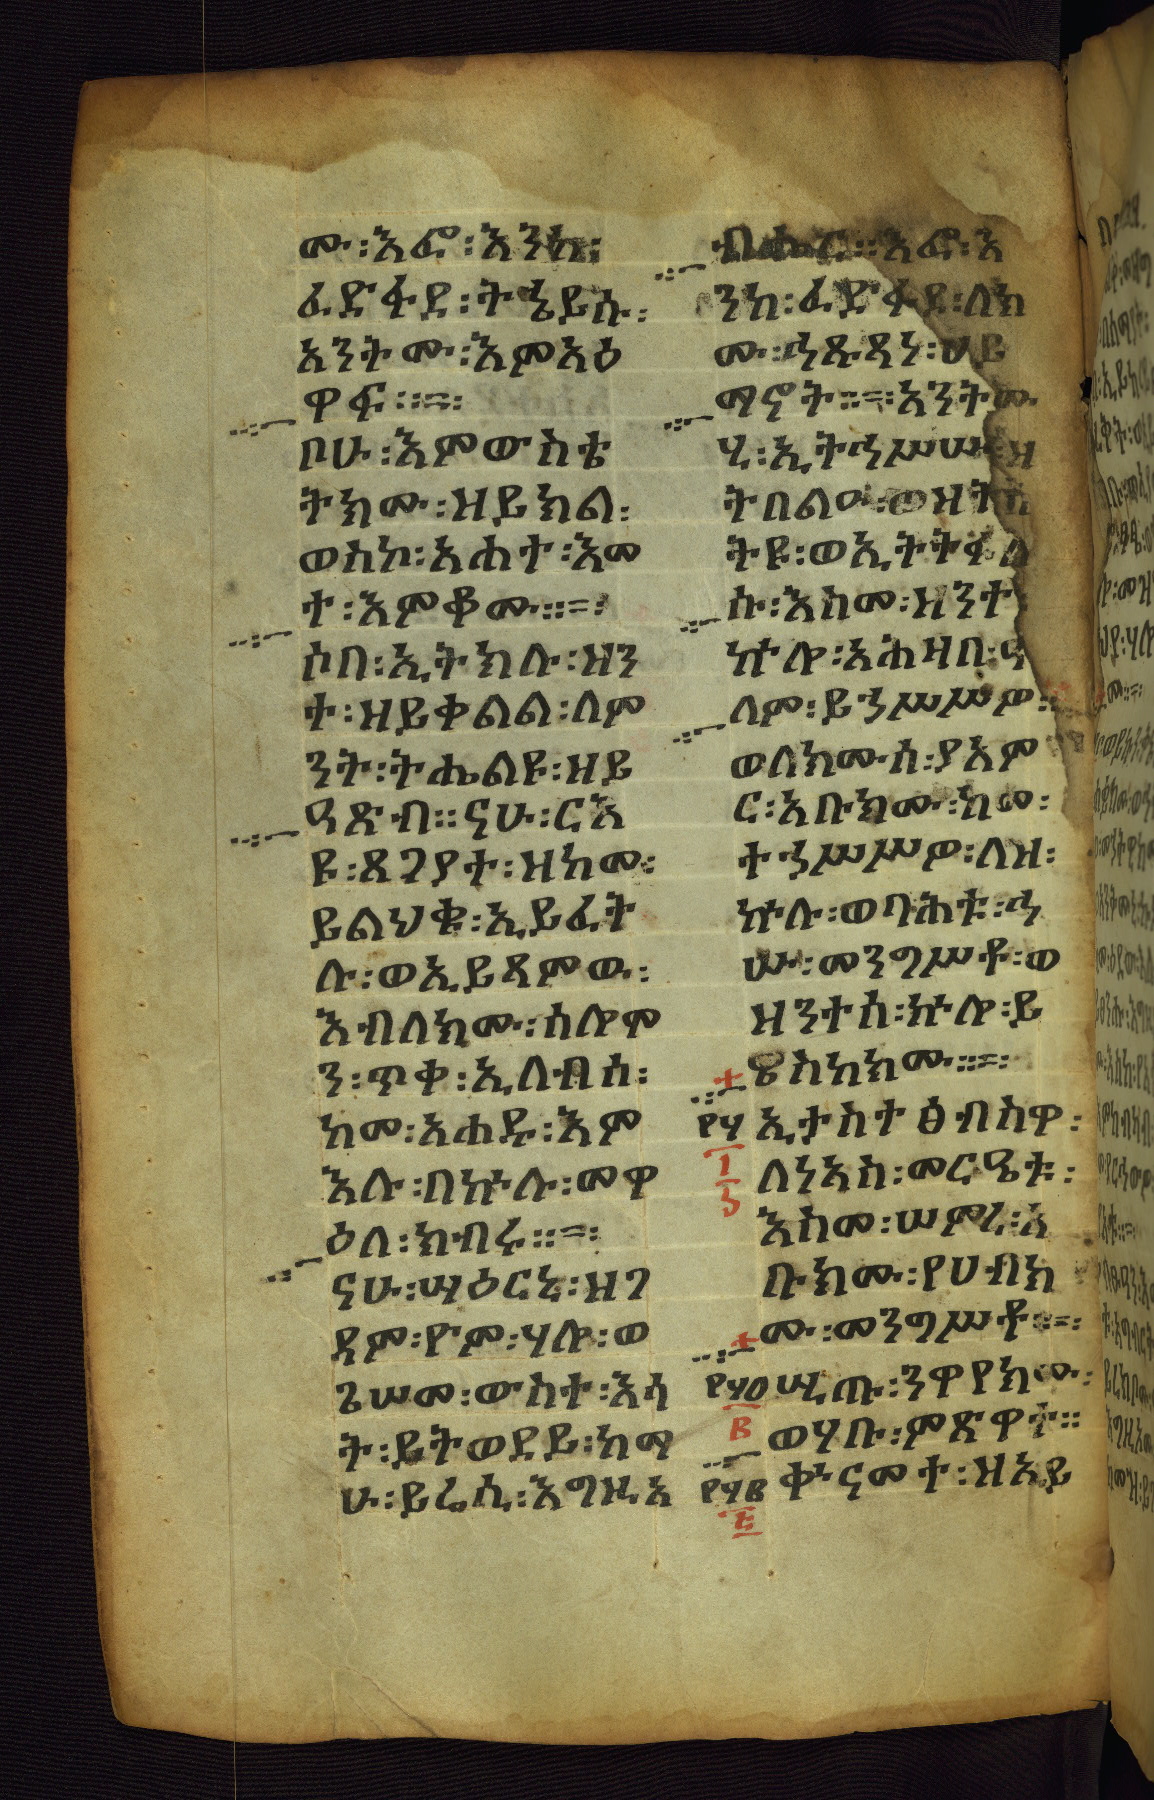 ሙ፡እፎ፡እንከ፡
ፈድፋደ፡ትኄይሱ፡
አንትሙ፡እምአዕ
ዋፍ፡፡=፡
ቦሁ፡እምውስቴ
ትክሙ፡ዘይክል፡
ወስኮ፡አሐተ፡እመ
ተ፡እምቆሙ፡፡=፡
ሶበ፡ኢትክሉ፡ዘን
ተ፡ዘይቀልል፡ለም
ንት፡ትሔልዩ፡ዘይ
ዓጽብ፡፡ናሁ፡ርእ
ዩ፡ጸጌያተ፡ዘከመ፡
ይልህቁ፡ኢይፈት
ሉ፡ወኢይጻምዉ፡
እብለክሙ፡ሰሎሞ
ን፡ጥቀ፡ኢለብሰ፡
ከመ፡አሐዱ፡እም
እሉ፡በኵሉ፡መዋ
ዕለ፡ክብሩ፡፡=፡
ናሁ፡ሣዕርኒ፡ዘገ
ዳም፡ዮም፡ሃሎ፡ወ
ጌሠመ፡ውስተ፡እሳ
ት፡ይትወደይ፡ከማ
ሁ፡ይሬሲ፡እግዚአ
ብሔር፡፡እፎ፡እ
ንከ፡ፈድፋደ፡ለክ
ሙ፡ኅጹጻነ፡ሀይ
ማኖት፡፡=፡አንትሙ
ሂ፡ኢትኅሥሡ፡ዘ
ትበልዑ፡ወዘት
ትዩ፡ወኢትትፋለ
ሱ፡እስመ፡ዘንተ
ኵሎ፡አሕዛበ፡ዓ
ለም፡ይኅሥሥዎ፡፡
ወለክሙሰ፡ያአም
ር፡አቡክሙ፡ከመ፡
ተኅሥሥዎ፡ለዝ፡
ኵሉ፡ወባሕቱ፡ኅ
ሡ፡መንግሥቶ፡ወ
ዘንተሰ፡ኵሎ፡ይ
ዌስከክሙ፡፡=፡
፻፶ ኢታስተፅብስዋ፡
ለነአስ፡መርዔቱ፡
እስመ፡ሠምረ፡አ
ቡክሙ፡የሀብክ
ሙ፡መንግሥቶ፡፡=፡
ሢጡ፡ንዋየክሙ፡
ወሃቡ፡ምጽዋተ፡፡
ቍናመተ፡ዘእይ